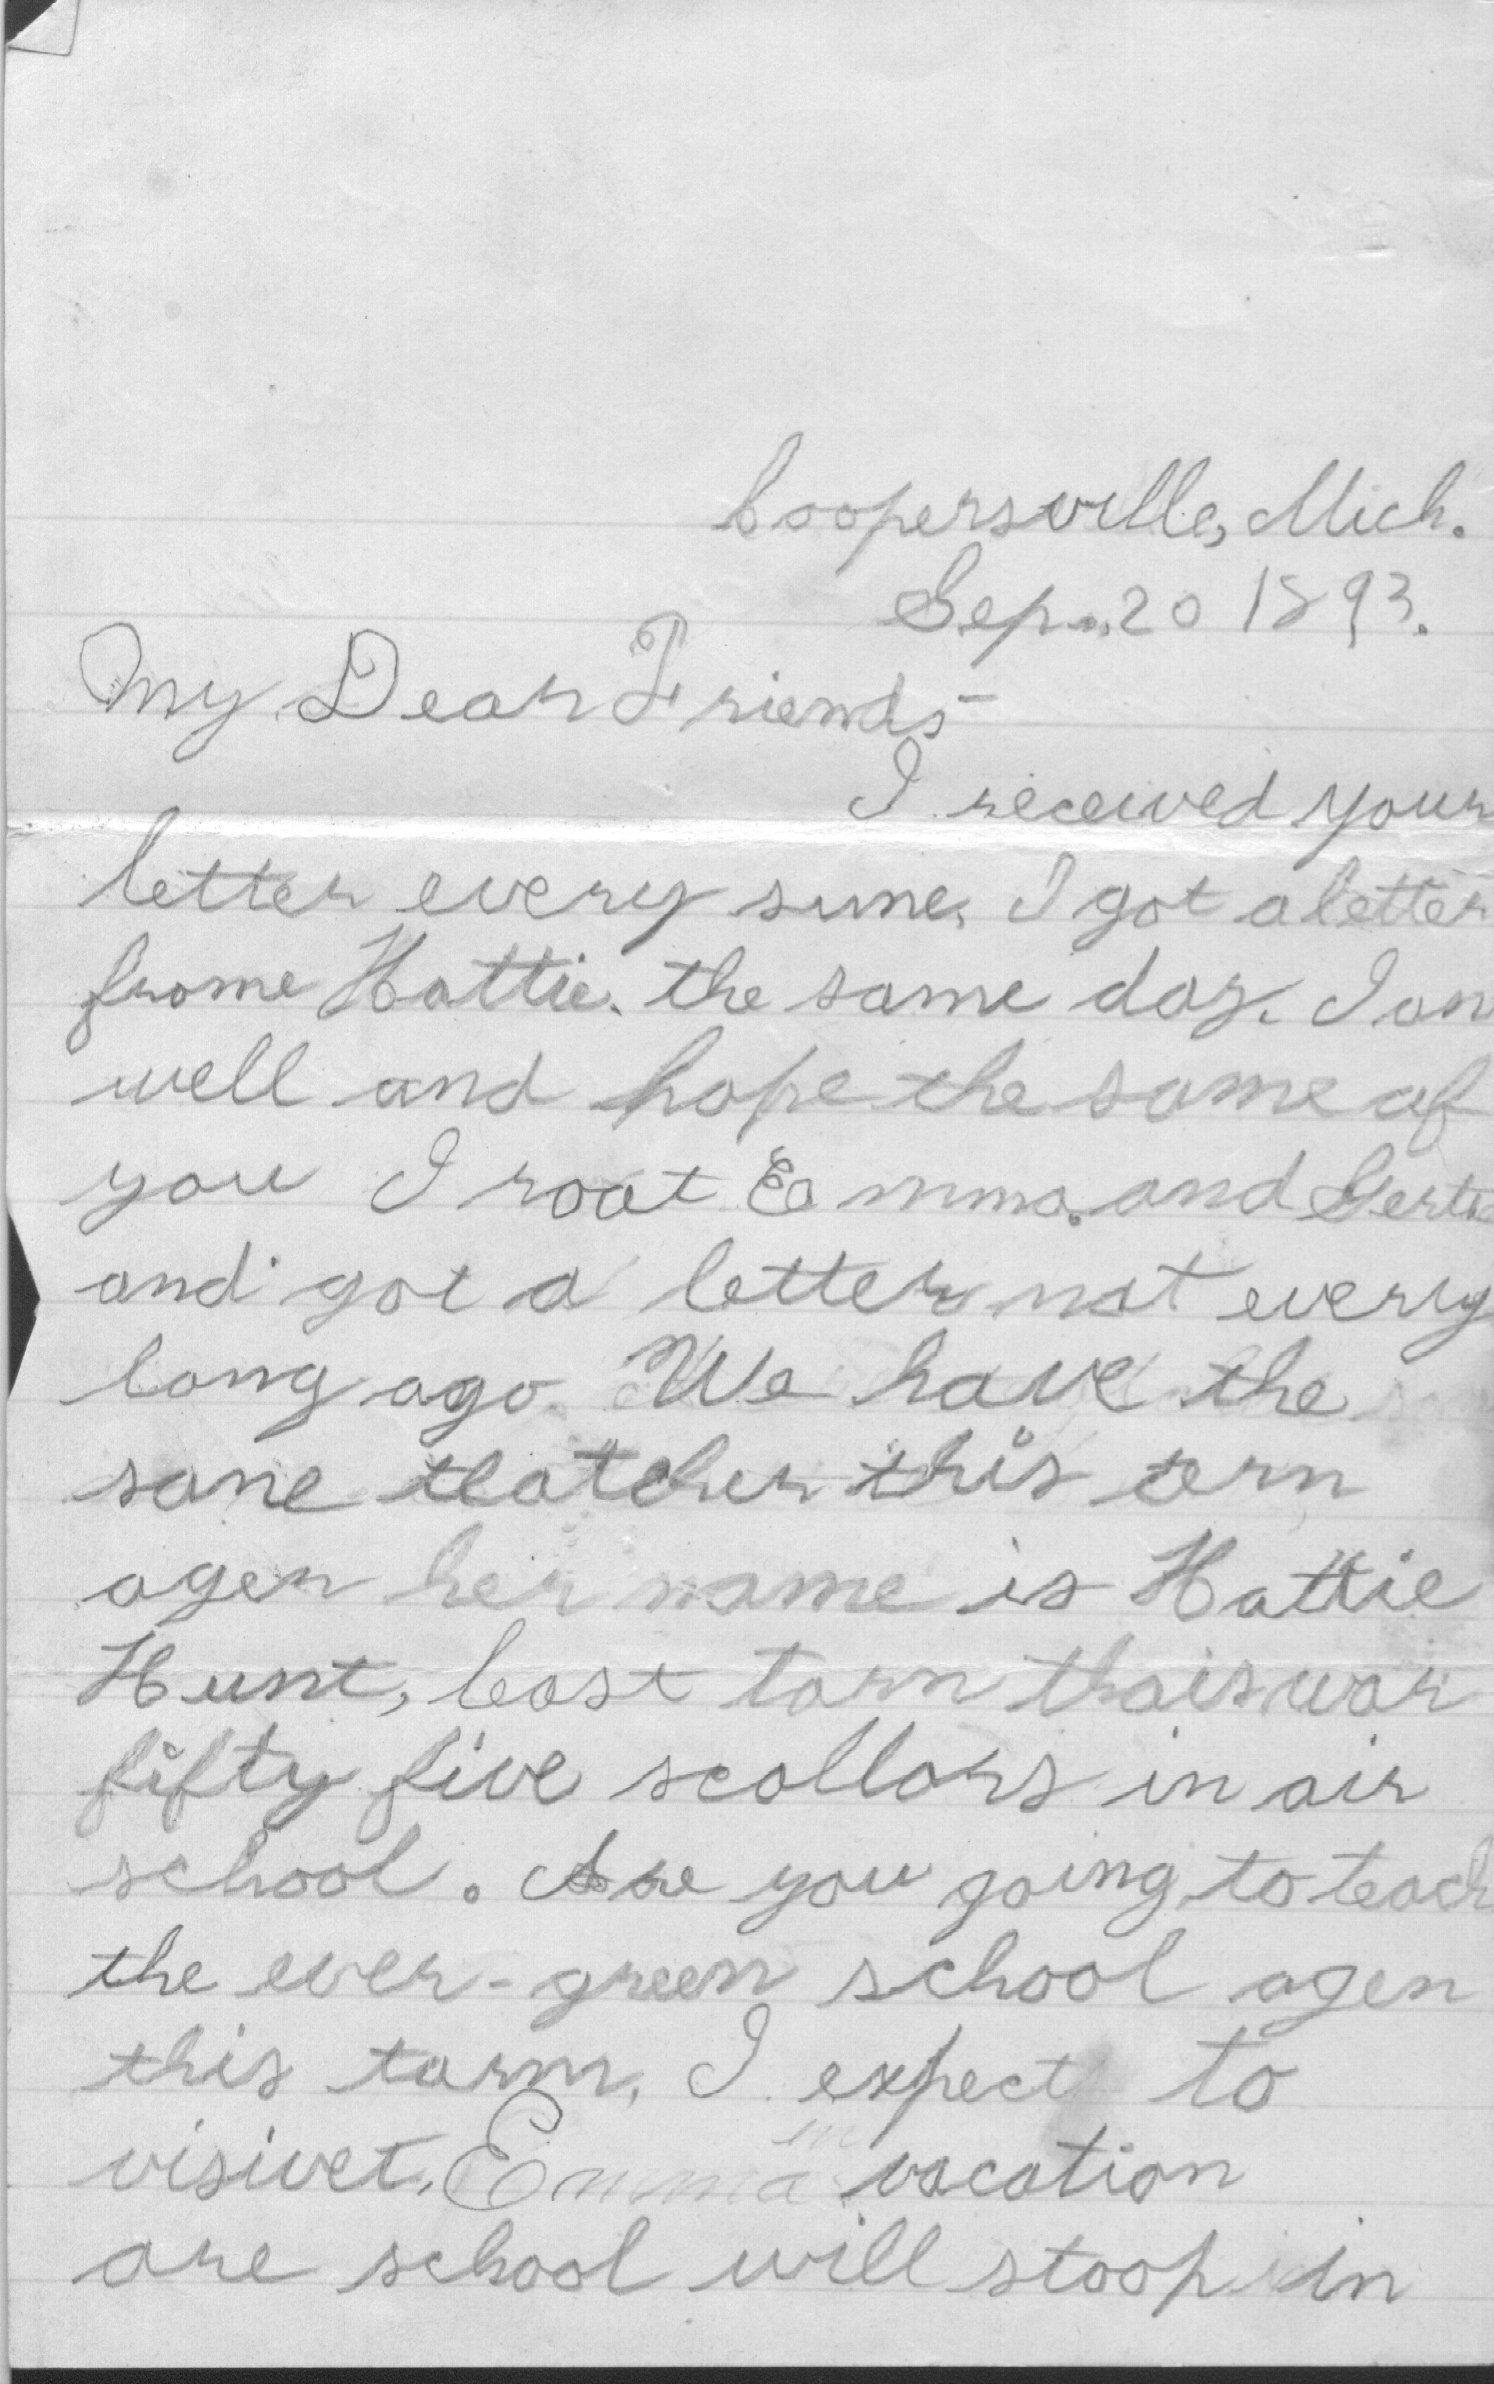 Coopersville, Mich.
Sep. 20 1893.
My Dear Friends-
I received your
letter every sune, I got a letter
frome Hattie. the same day. I am
well and hope the same of
you I roat Emma. and Gertie
and got a letter not every
long ago. We have the
sane teatcher this tern
agen her name is Hattie
Hunt, last tarn thair war
fifty five scollars in air
school. Are you going to teach
the ever-green school agen
this tarm, I expect to
visivet. Emma in vacation
are school will stoop in